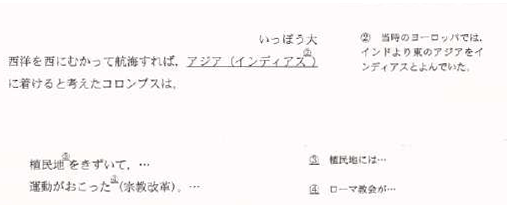 いっぽう大
西洋を西にむかって航海すれば，アジア（インディアス②）
に着けると考えたコロンブスは，
② 当時のヨーロッパでは，
インドより東のアジアをイ
ンディアスとよんでいた。
植民地③をきずいて，…
運動がおこった④(宗教改革)。…
③ 植民地には…
④ ローマ教会が…